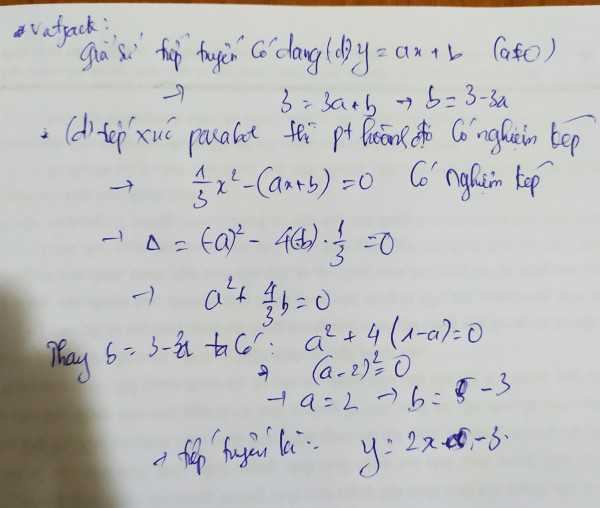 * Vatjack:
Giả sử tiếp tuyến có dạng (d) y = ax + b (a≠0)
→ 3 = 3a + b → b = 3 - 3a
• (d) tiếp xúc parabol thì pt hoành độ có nghiệm kép
→ 1/3 x² - (ax + b) = 0 có nghiệm kép
→ Δ = (-a)² - 4(-b) · 1/3 = 0
→ a² + 4/3 b = 0
Thay b = 3 - 3a ta có: a² + 4(1-a) = 0
→ (a-2)² = 0
→ a = 2 → b = -3
→ tiếp tuyến là: y = 2x - 3.